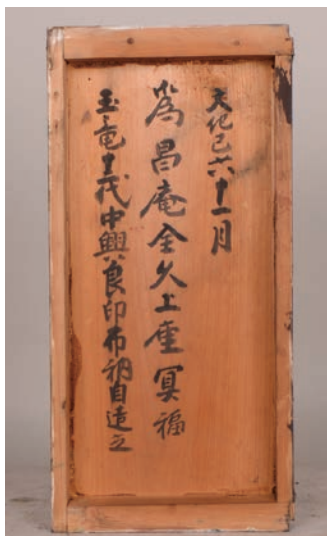 文化己六十一月
為昌庵全久上座冥福
玉竜十代中興良印布衲自造之